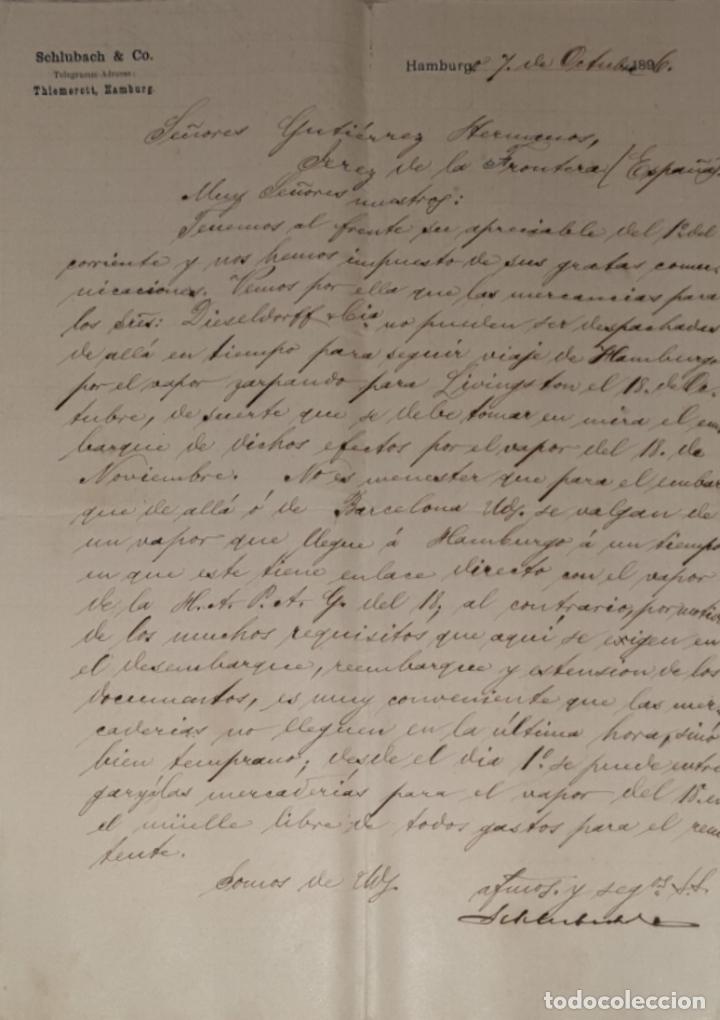 Schlubach & Co.
Telegramm-Adresse:
Thiemerott, Hamburg.
Hamburgo 7. de Octubre 1896.
Señores Gutiérrez Hermanos,
Jerez de la Frontera / España.
Muy Señores nuestros:
Tenemos al frente su apreciable del 1º del
corriente y nos hemos impuesto de sus gratas comu-
nicaciones. Vemos por ella que las mercancias para
los Sres: Dieseldorff & Cia no pueden ser despachadas
de allá en tiempo para seguir viaje de Hamburgo
por el vapor zarpando para Livingston el 18. de Oc-
tubre, de suerte que se debe tomar en mira el em-
barque de dichos efectos por el vapor del 18. de
Noviembre. No es menester que para el embar
que de allá ó de Barcelona Uds. se valgan de
un vapor que llegue á Hamburgo á un tiempo
en que este tiene enlace directo con el vapor
de la H. A. P. A. G. del 18; al contrario, por motivo
de los muchos requisitos que aquí se exigen en
el desembarque, reembarque y estension de los
documentos, es muy conveniente que las mer-
caderias no lleguen en la última hora, sinó
bien temprano; desde el dia 1º se puede entre
gar las mercaderías para el vapor del 18. en
el müelle libre de todos gastos para el remi
tente.
Somos de Uds.
afmos. y segos. S.S.
Schlubach & Co
todocoleccion
todocoleccion.net